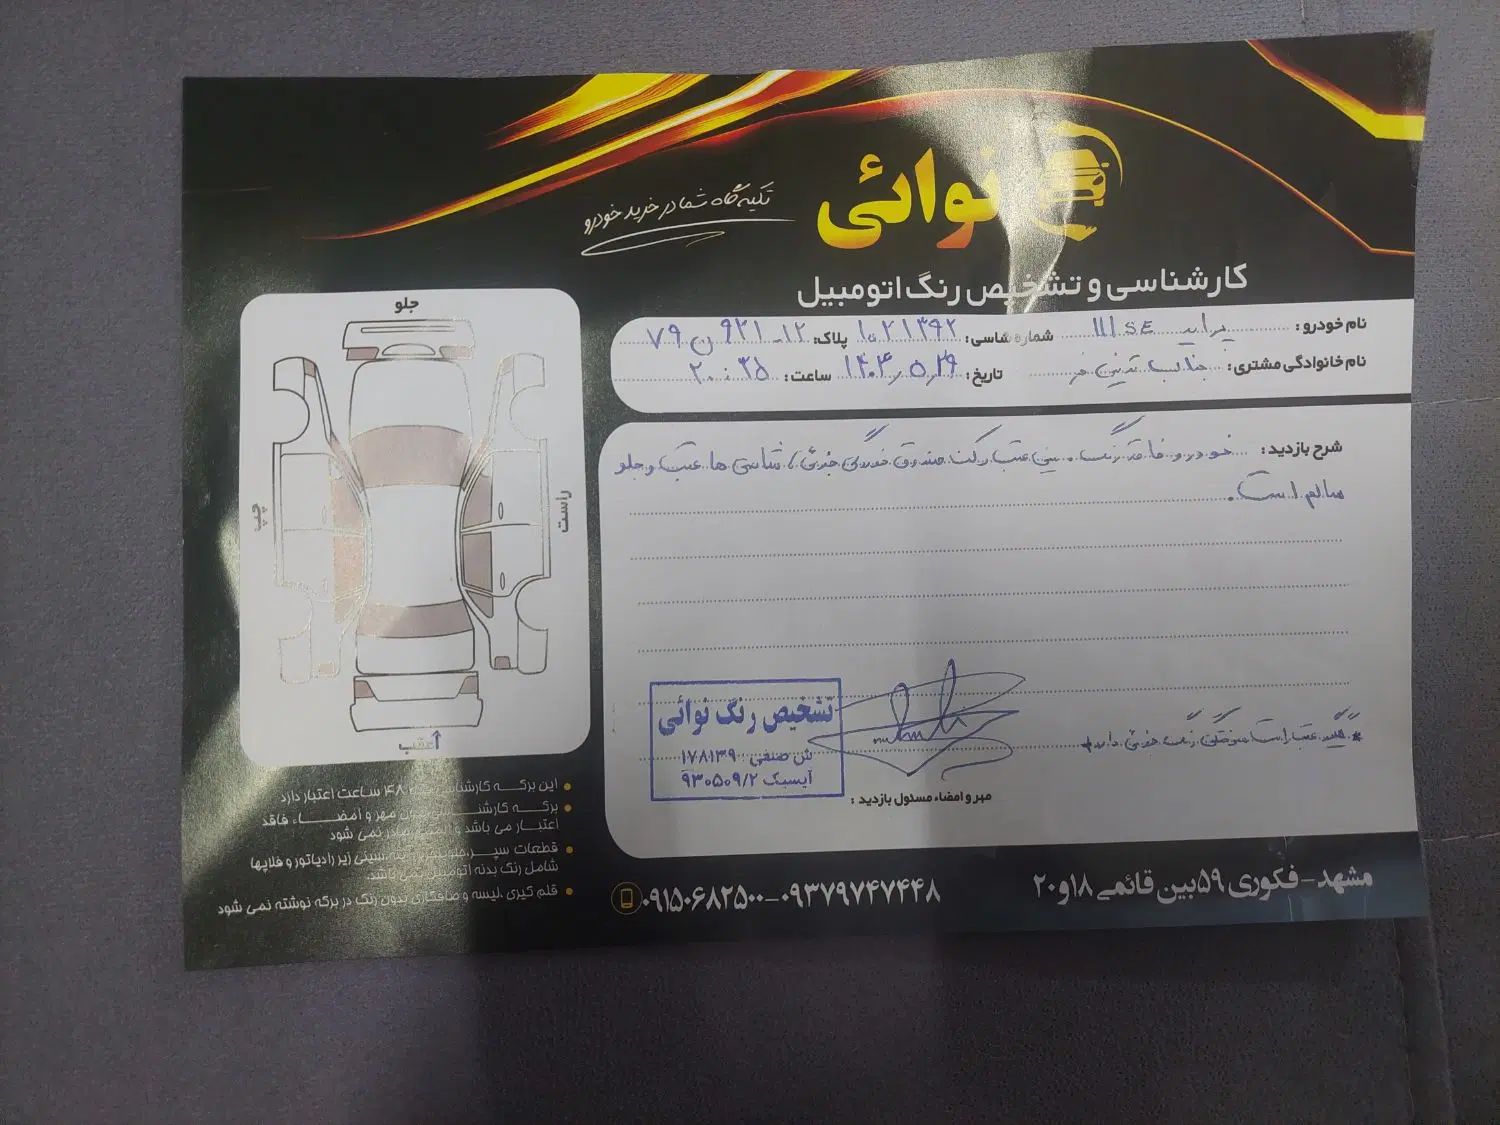 نوائی
تکیه گاه شما در خرید خودرو
کارشناسی و تشخیص رنگ اتومبیل
نام خودرو : پراید 111 SE شماره شاسی : 1021392 پلاک : 12 - 921 ن 79
نام خانوادگی مشتری : جناب تاریخ : 1404/5/29 ساعت : 20:35
شرح بازدید : خودرو فاقد رنگ، سینی عقب رکت صندوق خوردگی جزئی، شاسی ها عقب و جلو
سالم است.
*گلگیر عقب راست سوختگی رنگ جزئی دارد*
تشخیص رنگ نوائی
ش صنفی ۱۷۸۱۳۹
آیسیک ۹۳۰۵۰۹/۲
مهر و امضاء مسئول بازدید :
جلو
چپ
راست
عقب
این برگه کارشناسی ۴۸ ساعت اعتبار دارد
برگه کارشناسی بدون مهر و امضاء، فاقد
اعتبار می باشد و المثنی صادر نمی شود
قطعات سپر، سینی زیر رادیاتور و فلاپها
شامل رنگ بدنه اتومبیل نمی باشد
قلم گیری، لیسه و صافکاری بدون رنگ در برگه نوشته نمی شود
۰۹۱۵۰۶۸۲۵۰۰-۰۹۳۷۹۷۴۷۴۴۸
مشهد - فکوری ۵۹ بین قائمی ۱۸ و ۲۰